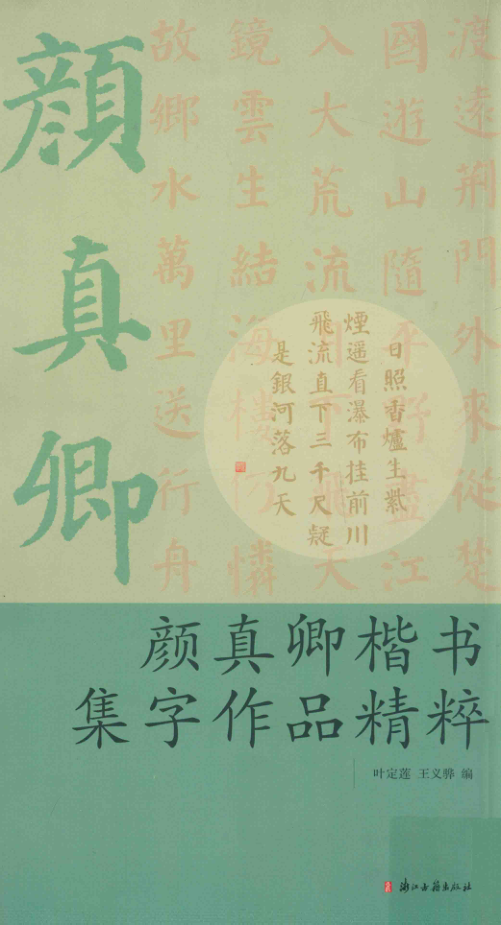 顔真卿
渡遠荊門外來從楚
國遊山隨平野盡江
入大荒流月下飛天
鏡雲生結海樓仍憐
故鄉水萬里送行舟
日照香爐生紫
煙遥看瀑布挂前川
飛流直下三千尺疑
是銀河落九天
颜真卿楷书
集字作品精粹
叶定莲 王义骅 编
浙江古籍出版社